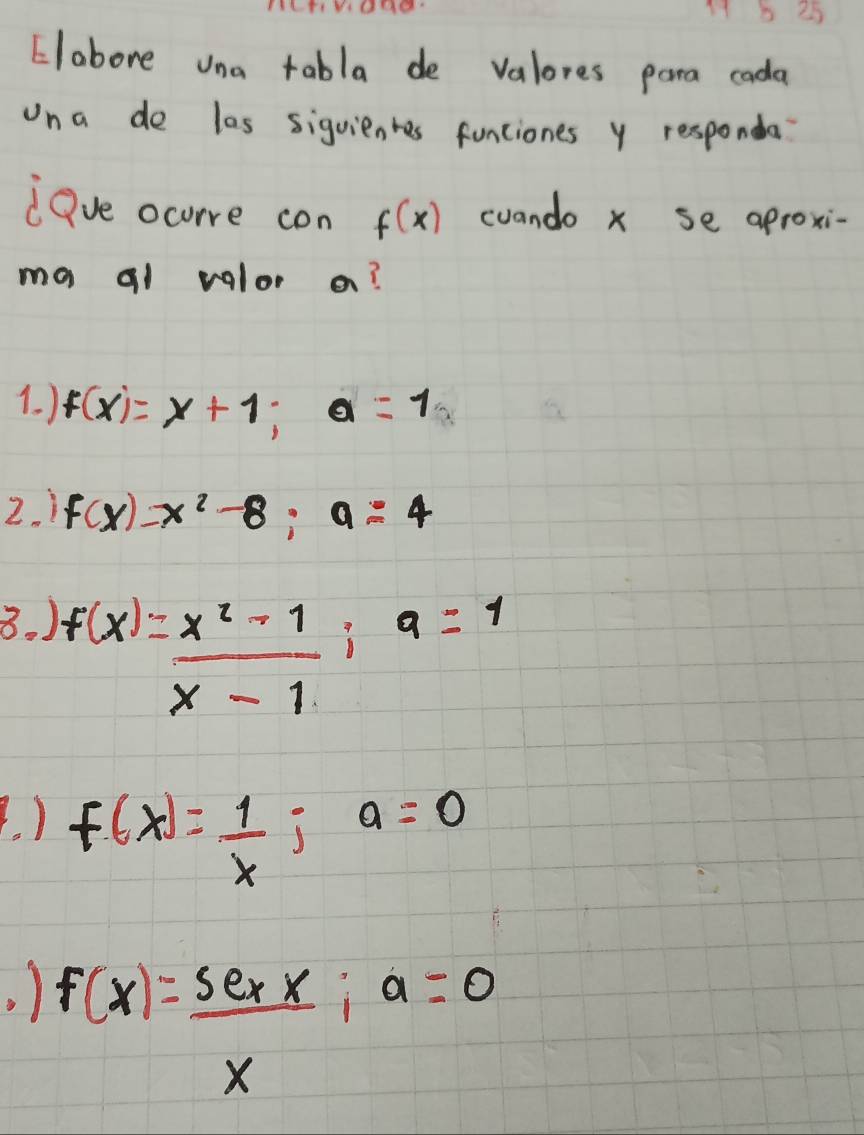 Actividad.
19 5 25
Elabore una tabla de valores para cada
una de las siguientes funciones y responda:
¿Que ocurre con f(x) cuando x se aproxi-
ma al valor a?
1.) f(x) = x + 1; a = 1
2.) f(x) = x² - 8; a = 4
3.) f(x) = x² - 1 ; a = 1
x - 1
.) f(x) = 1 ; a = 0
x
.) f(x) = sex x ; a = 0
x